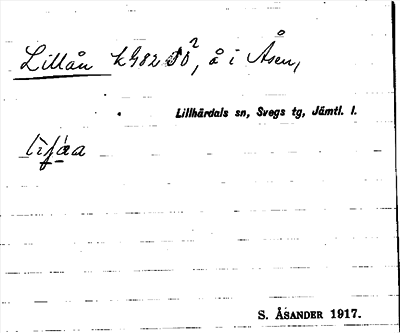 Lillån k982 SO², å i Åsen,
Lillhärdals sn, Svegs tg, Jämtl. l.
S. ÅSANDER 1917.